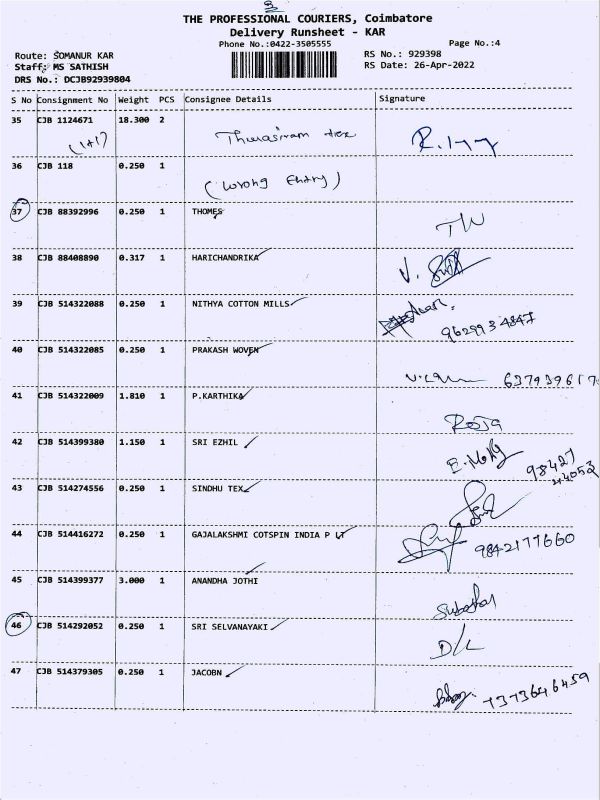 3
THE PROFESSIONAL COURIERS, Coimbatore
Delivery Runsheet - KAR
Phone No.:0422-3505555
Page No.:4
Route: SOMANUR KAR
RS No.: 929398
Staff: MS SATHISH
RS Date: 26-Apr-2022
DRS No.: DCJB92939804
S No Consignment No Weight PCS Consignee Details Signature
35 CJB 1124671 18.300 2
(1+1)
36 CJB 118 0.250 1
(Wrong Entry)
37 CJB 88392996 0.250 1 THOMES
38 CJB 88408890 0.317 1 HARICHANDRIKA
39 CJB 514322088 0.250 1 NITHYA COTTON MILLS
9629934847
40 CJB 514322085 0.250 1 PRAKASH WOVEN
637939617
41 CJB 514322009 1.810 1 P.KARTHIKA
Roja
42 CJB 514399380 1.150 1 SRI EZHIL
98427
44052
43 CJB 514274556 0.250 1 SINDHU TEX
44 CJB 514416272 0.250 1 GAJALAKSHMI COTSPIN INDIA P LT
9842177660
45 CJB 514399377 3.000 1 ANANDHA JOTHI
46 CJB 514292052 0.250 1 SRI SELVANAYAKI
D/L
47 CJB 514379305 0.250 1 JACOBN
7373646459